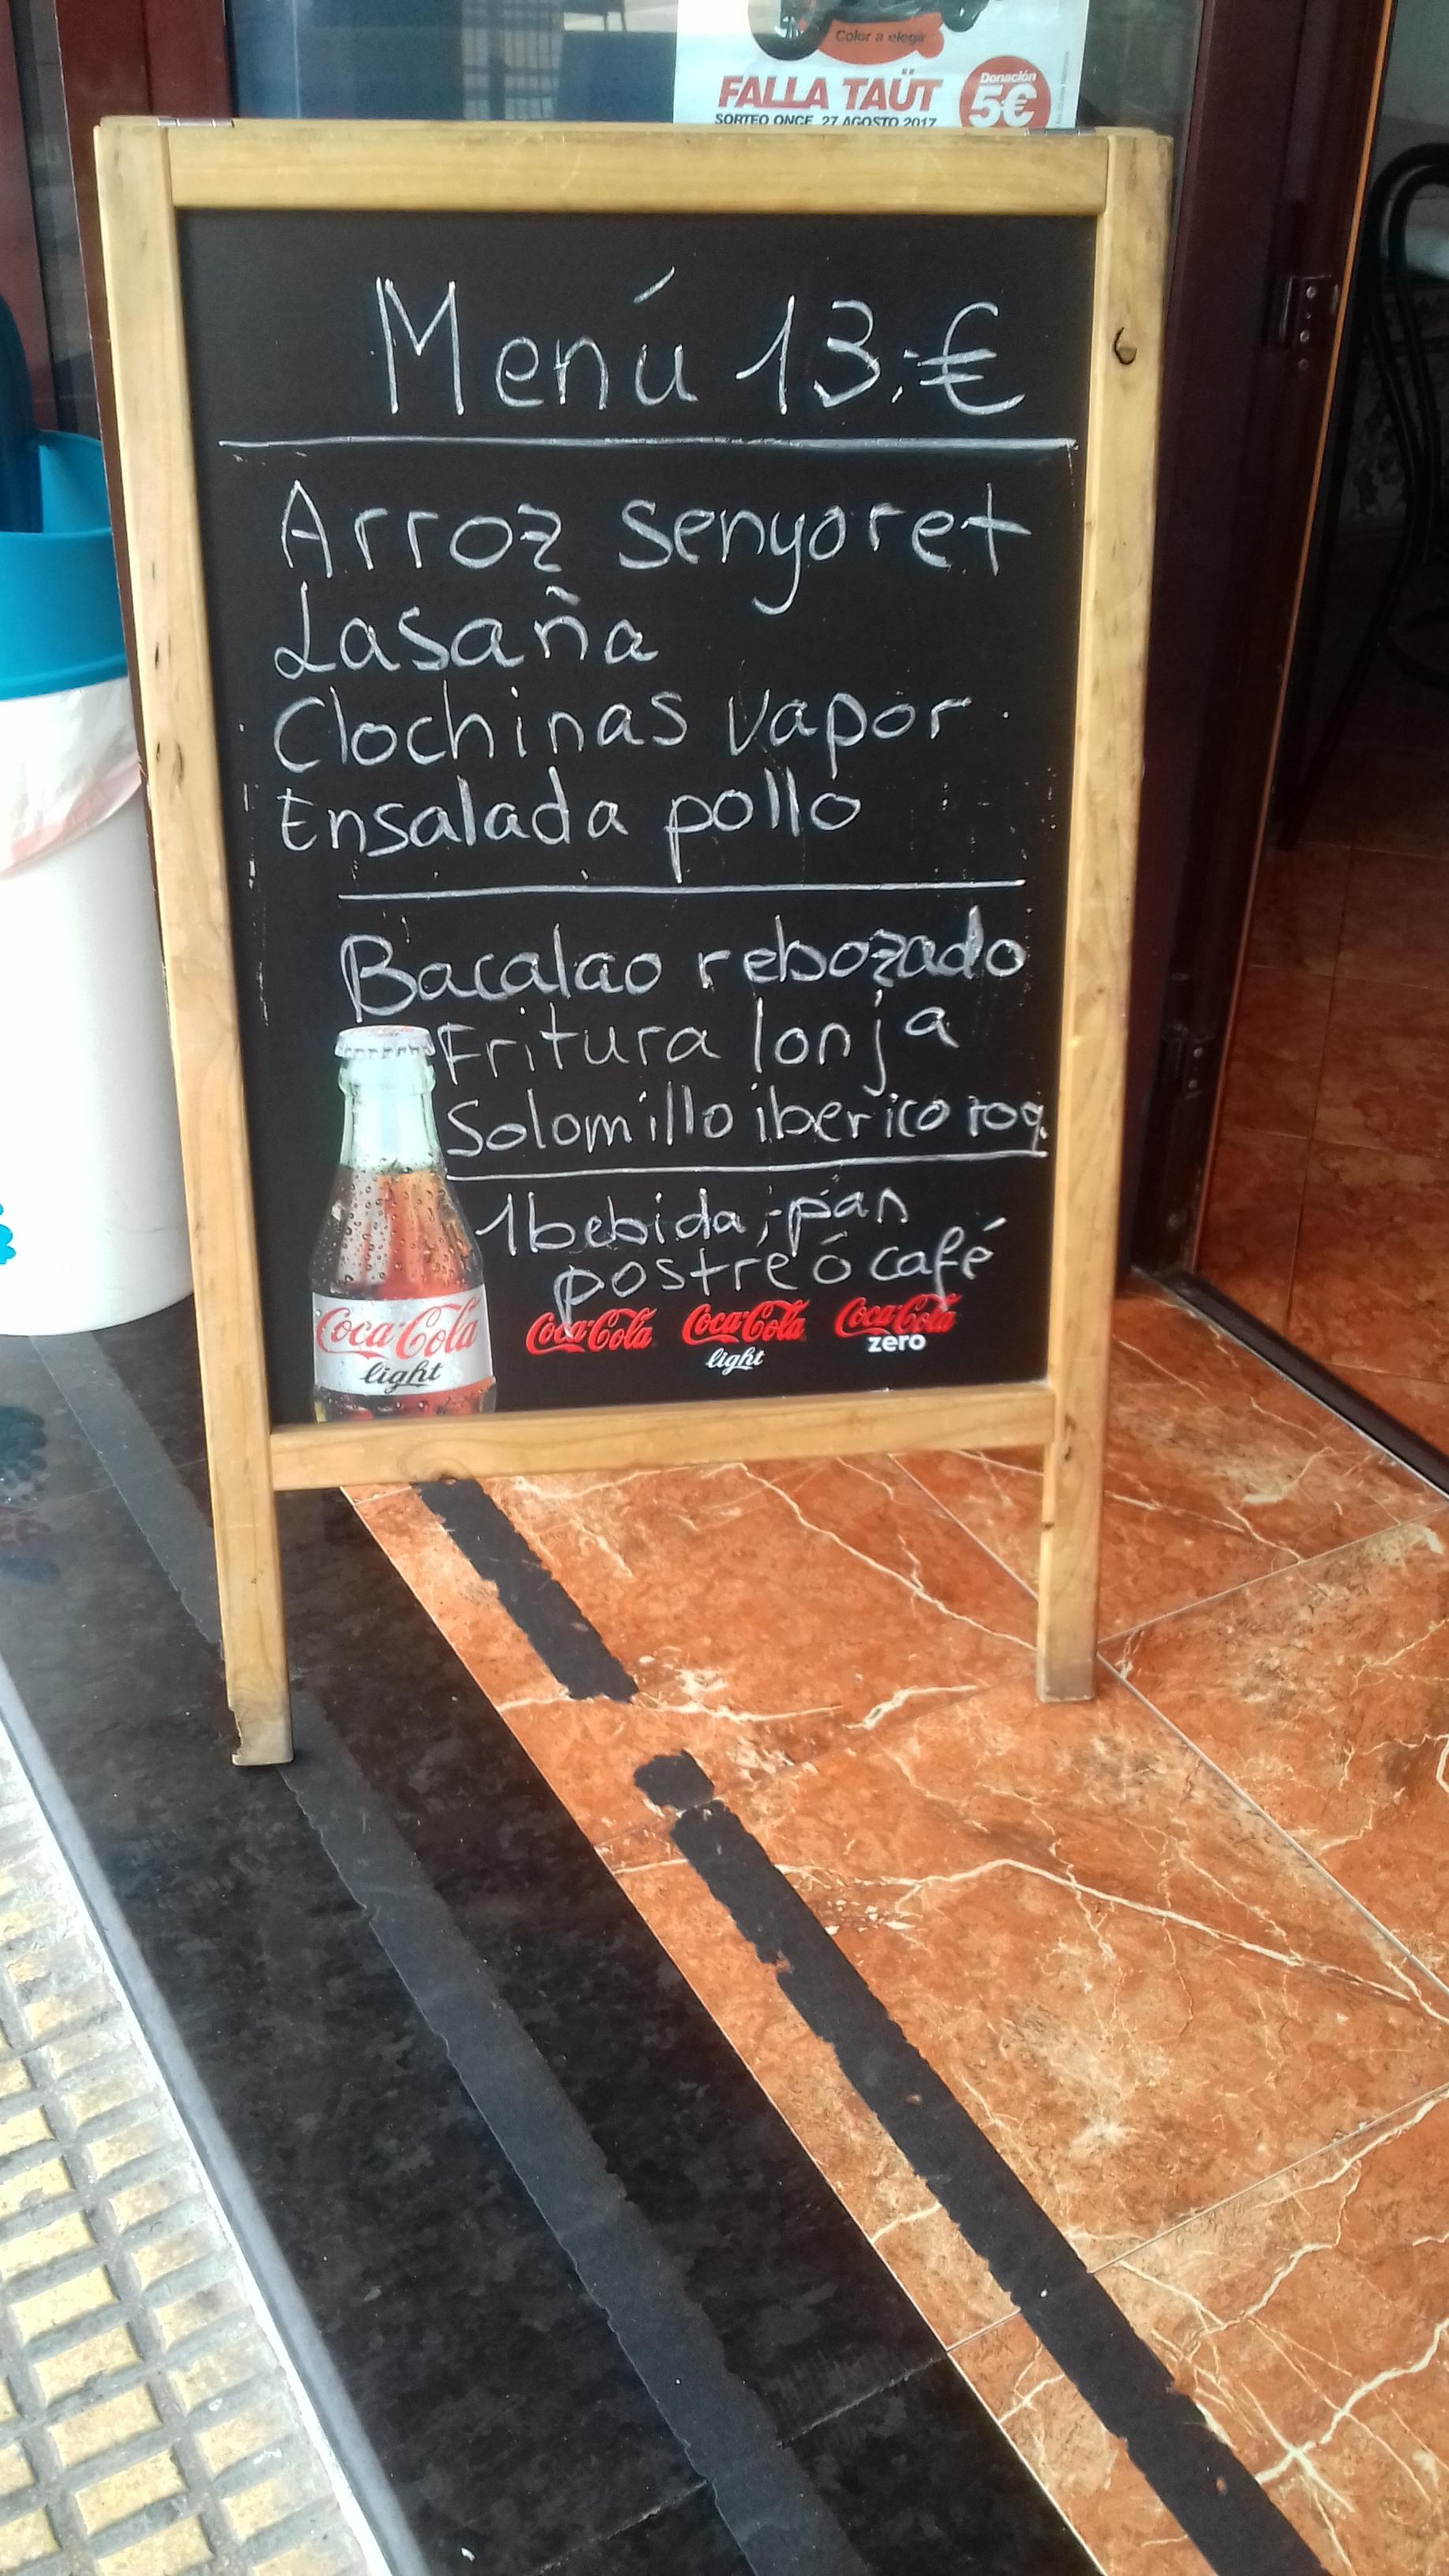 Color a elegir
FALLA TAÜT
Donación
5€
SORTEO ONCE, 27 AGOSTO 2017
Menú 13.-€
Arroz senyoret
Lasaña
Clochinas vapor
Ensalada pollo
Bacalao rebozado
Fritura lonja
Solomillo iberico roq.
1 bebida, pan
postre ó café
Coca-Cola Coca-Cola Coca-Cola
light zero
Coca-Cola
light